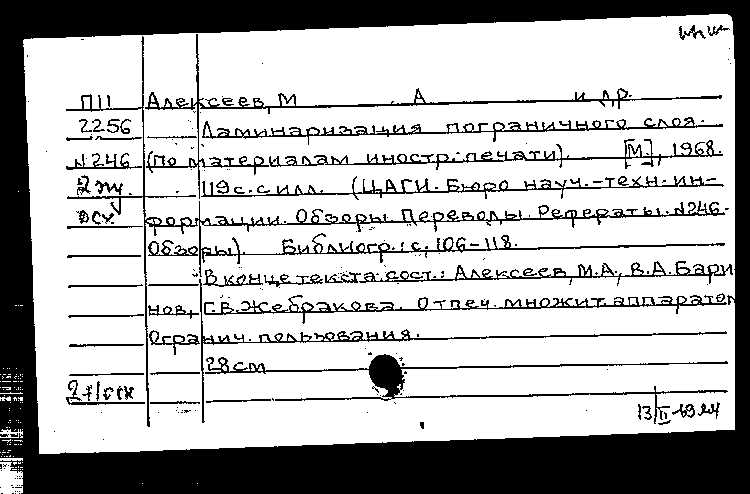 П11 Алексеев, М А и др.
2256 Ламинаризация пограничного слоя.
№246 (По материалам иностр. печати). [М.], 1968.
2 119 с. с илл. (ЦАГИ. Бюро науч.-техн. ин-
формации. Обзоры. Переводы. Рефераты. №246.
Обзоры). Библиогр.: с. 106-118.
В конце текста сост.: Алексеев, М.А., В.А. Бари
нов, Г.В. Жебракова. Отпеч. множит. аппаратом
Огранич. пользования.
28 см
13/II